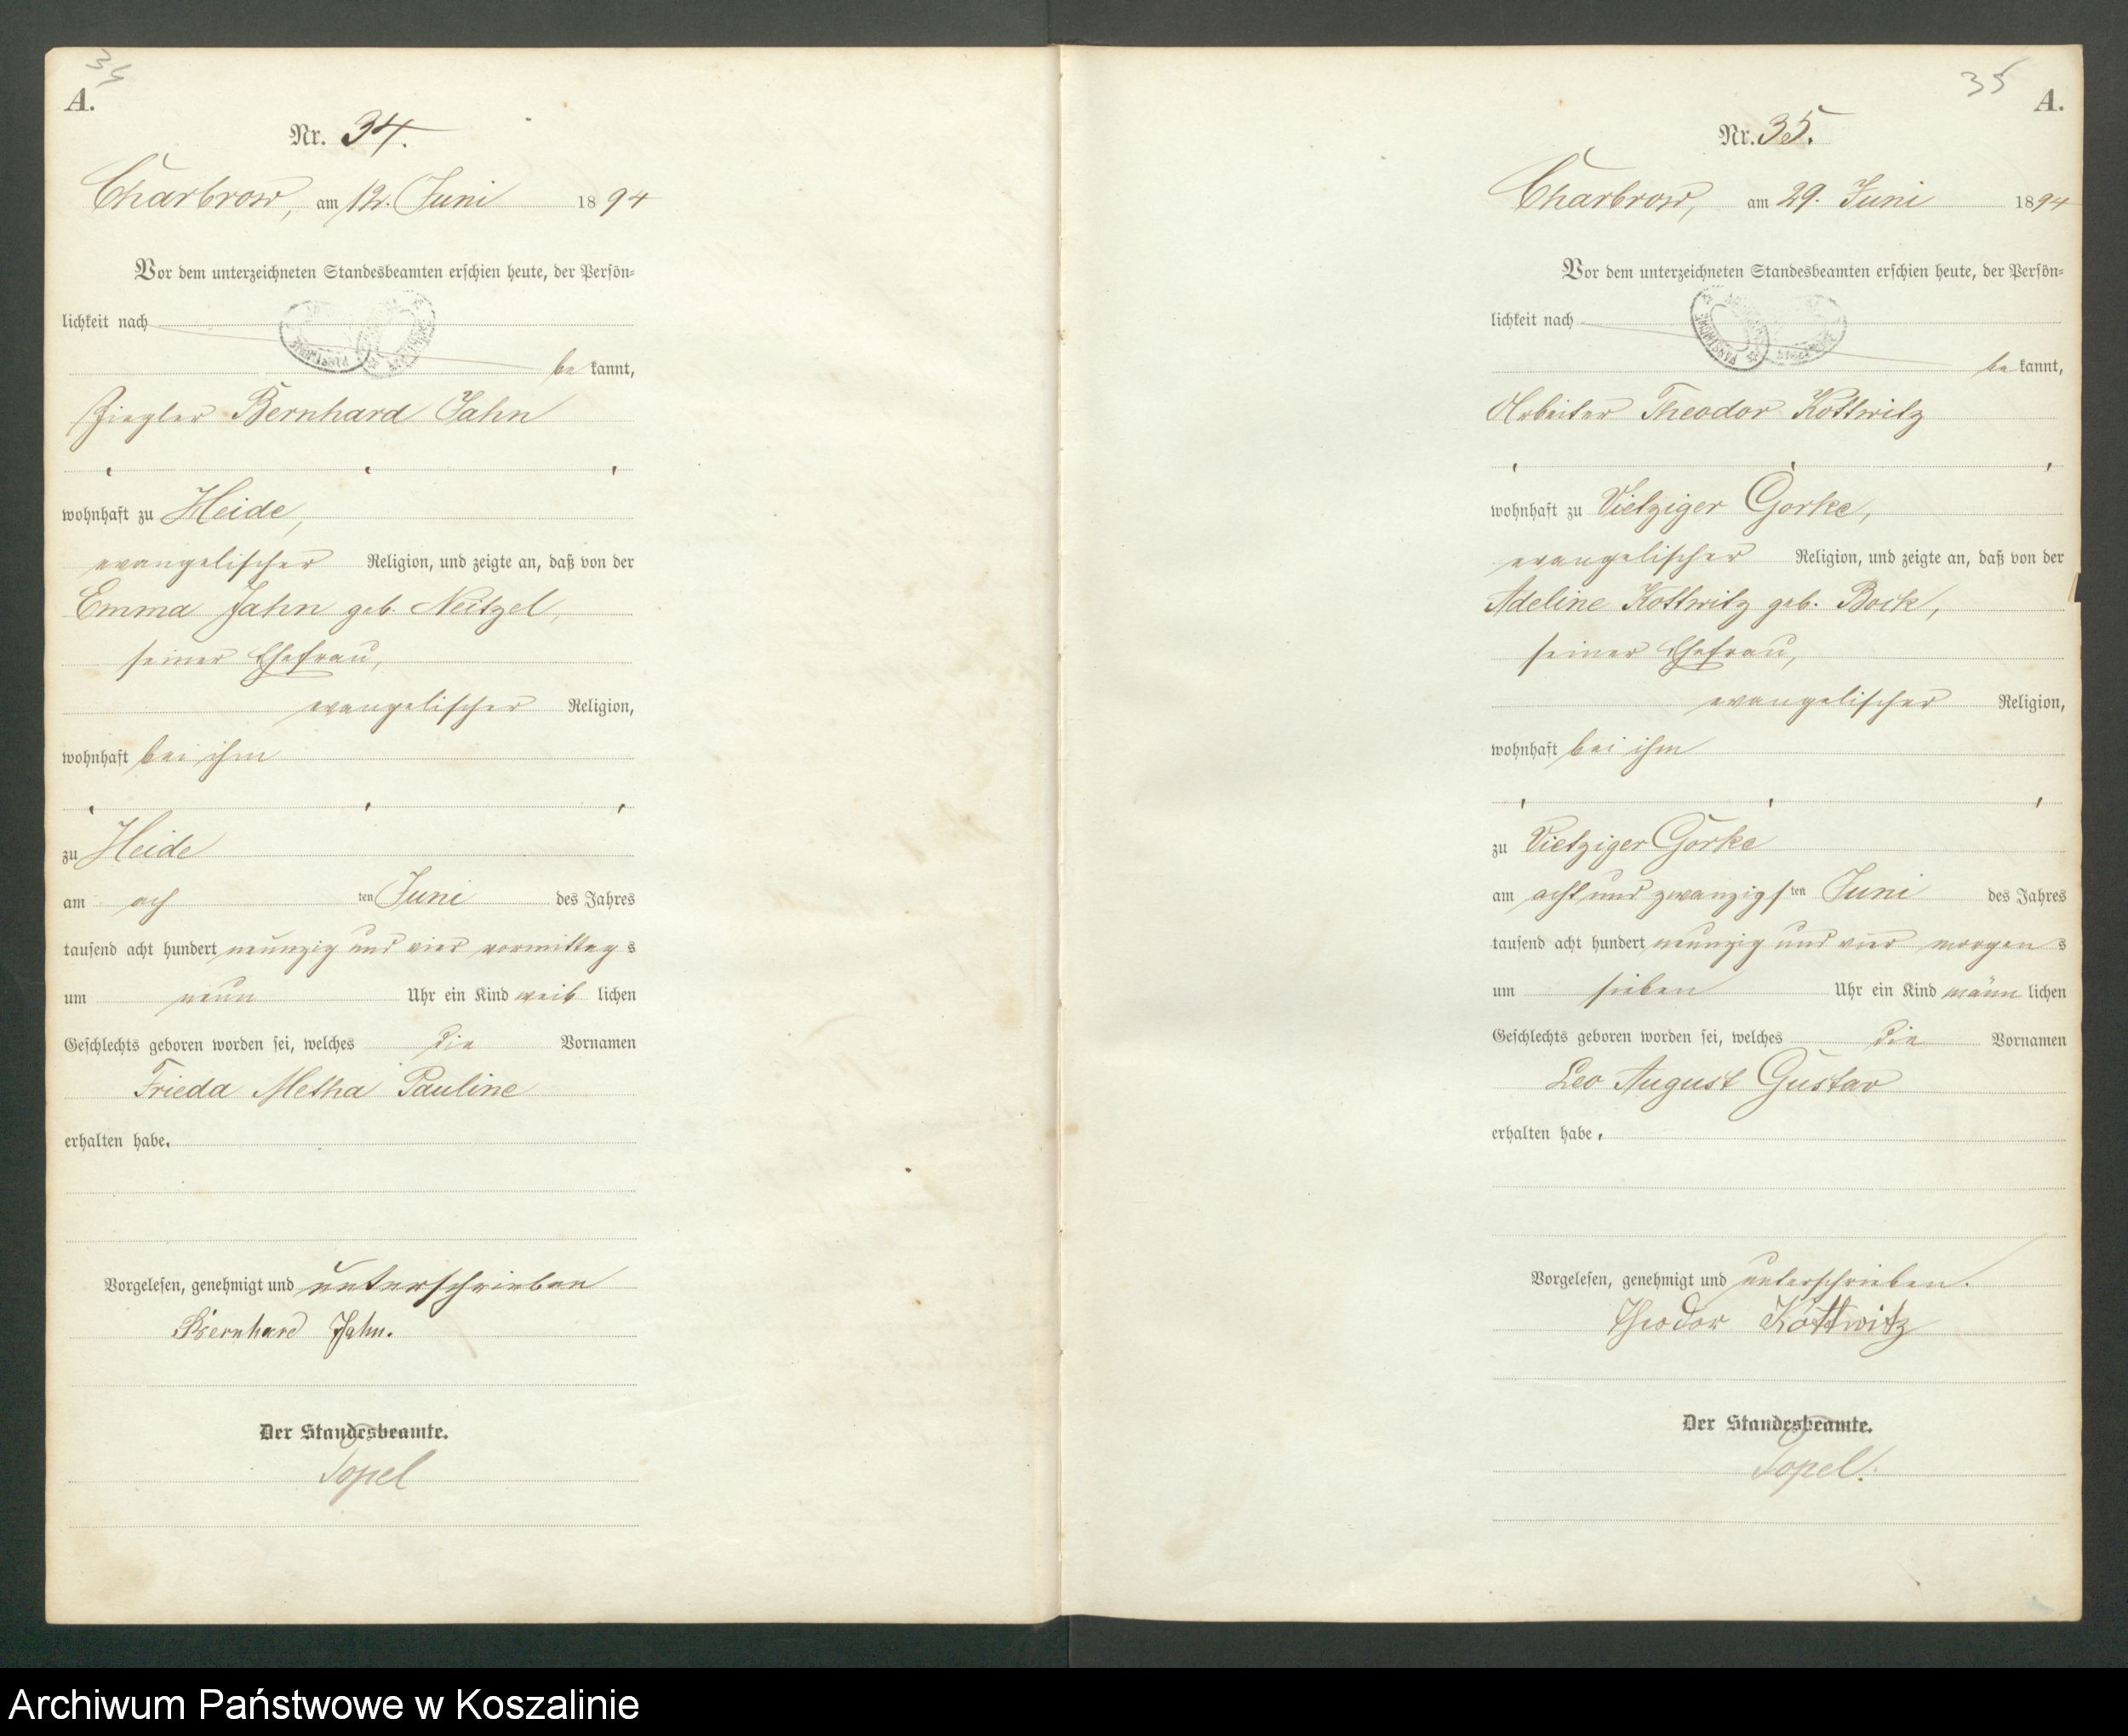 34
A.
Nr. 34.
Charbrow, am 12. Juni 1894
Vor dem unterzeichneten Standesbeamten erschien heute, der Persön-
lichkeit nach
be kannt,
Ziegler Bernhard Jahn
wohnhaft zu Heide,
evangelischer Religion, und zeigte an, daß von der
Emma Jahn geb. Neitzel,
seiner Ehefrau,
evangelischer Religion,
wohnhaft bei ihm
zu Heide
am ach ten Juni des Jahres
tausend acht hundert neunzig und vier vormittag s
um neun Uhr ein Kind weib lichen
Geschlechts geboren worden sei, welches die Vornamen
Frieda Metha Pauline
erhalten habe.
Vorgelesen, genehmigt und unterschrieben
Bernhard Jahn.
Der Standesbeamte.
Topel
35
A.
Nr. 35.
Charbrow, am 29. Juni 1894
Vor dem unterzeichneten Standesbeamten erschien heute, der Persön-
lichkeit nach
be kannt,
Arbeiter Theodor Kottwitz
wohnhaft zu Vietziger Görke,
evangelischer Religion, und zeigte an, daß von der
Adeline Kottwitz geb. Bock,
seiner Ehefrau,
evangelischer Religion,
wohnhaft bei ihm
zu Vietziger Görke
am acht und zwanzigs ten Juni des Jahres
tausend acht hundert neunzig und vier morgen s
um sieben Uhr ein Kind männ lichen
Geschlechts geboren worden sei, welches die Vornamen
Leo August Gustav
erhalten habe.
Vorgelesen, genehmigt und unterschrieben.
Theodor Kottwitz
Der Standesbeamte.
Topel.
Archiwum Państwowe w Koszalinie